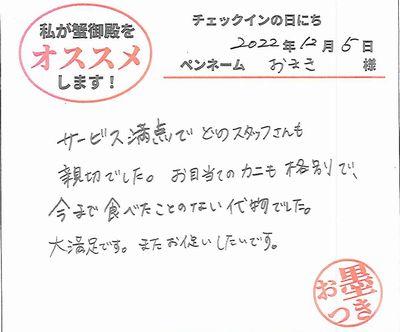 私が蟹御殿を
オススメ
します！
チェックインの日にち
2022年12月5日
ペンネーム おさき 様
サービス満点で どのスタッフさんも
親切でした。お目当てのカニも格別で、
今まで食べたことのない代物でした。
大満足です。またお促いしたいです。
お墨つき